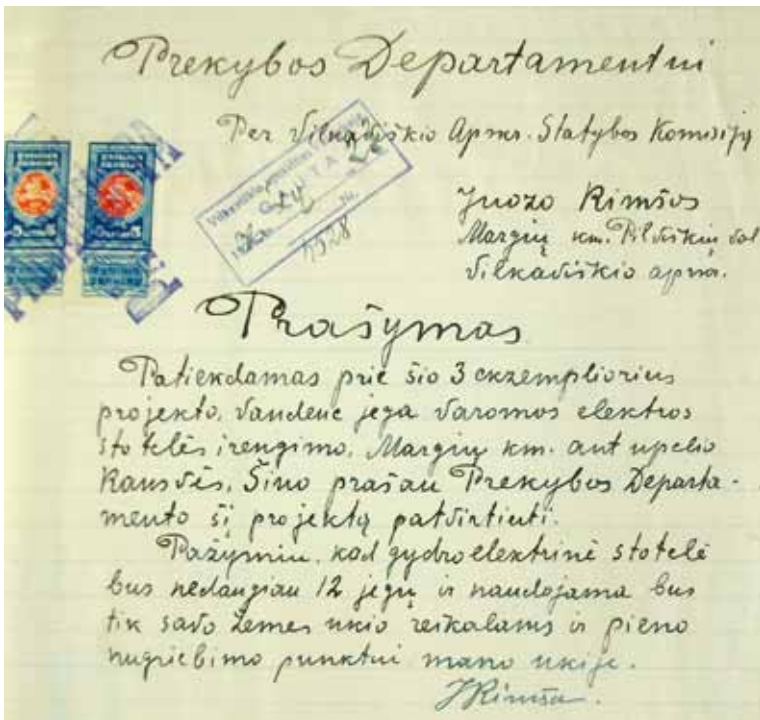 Prekybos Departamentui
Per Vilkaviškio Apskr. Statybos Komisiją
Juozo Rimšos
Margių km. Pilviškių val
Vilkaviškio apskr.
4528
Prašymas
Patiekdamas prie šio 3 ekzempliorius
projekto, vandens jėga varomos elektros
stotelės įrengimo, Margių km. ant upelio
Rausvės, Šiuo prašau Prekybos Departa-
mento šį projektą patvirtinti.
Pažymiu, kad gydroelektrinė stotelė
bus nedaugiau 12 jėgų ir naudojama bus
tik savo žemės ukio reikalams ir pieno
nugriebimo punktui mano ukije.
JRimša.